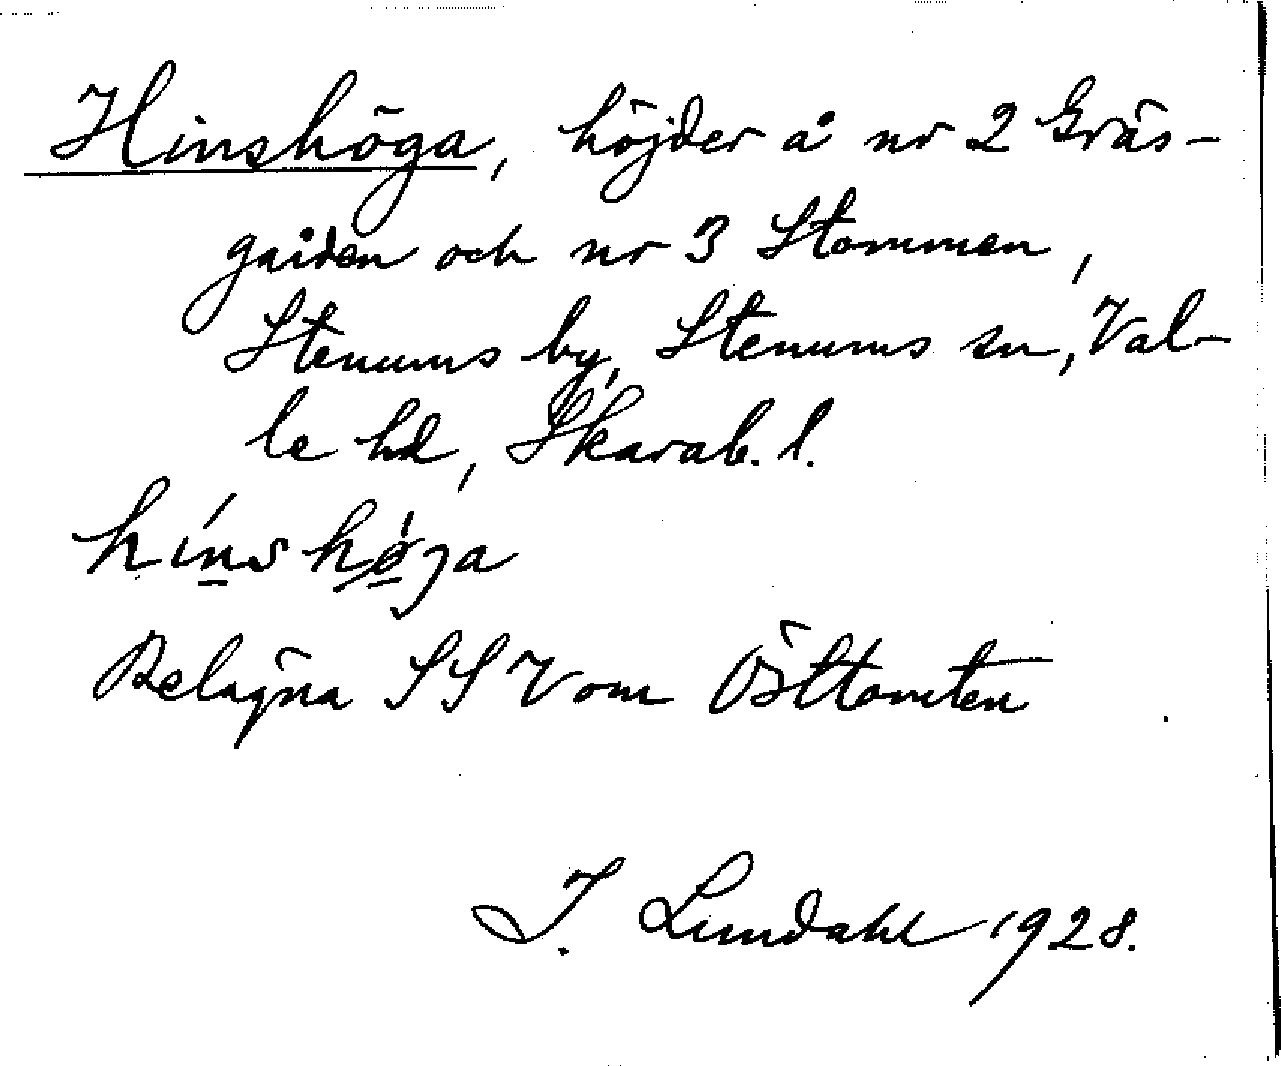 Hinshöga, höjder å nr 2 Gräs-
gården och nr 3 Stommen,
Stenums by, Stenums sn, Val-
le hd, Skarab. l.
hinshøja
Belägna SSV om Östtomten
I. Lundahl 1928.